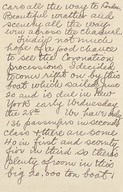 cars all the way to London
Beautiful weather and
scenery all the way
was across the
Finding not much
hope of a good chance
to see the Coronation
procession, I decided
to come right on by this
boat which sailed June
20 and is due in New
York early Wednesday
the 28th. We have only
136 passengers in second
class & there are some
40 in first and seventy
five in third so there's
plenty of room in this
big 20,000 ton boat.